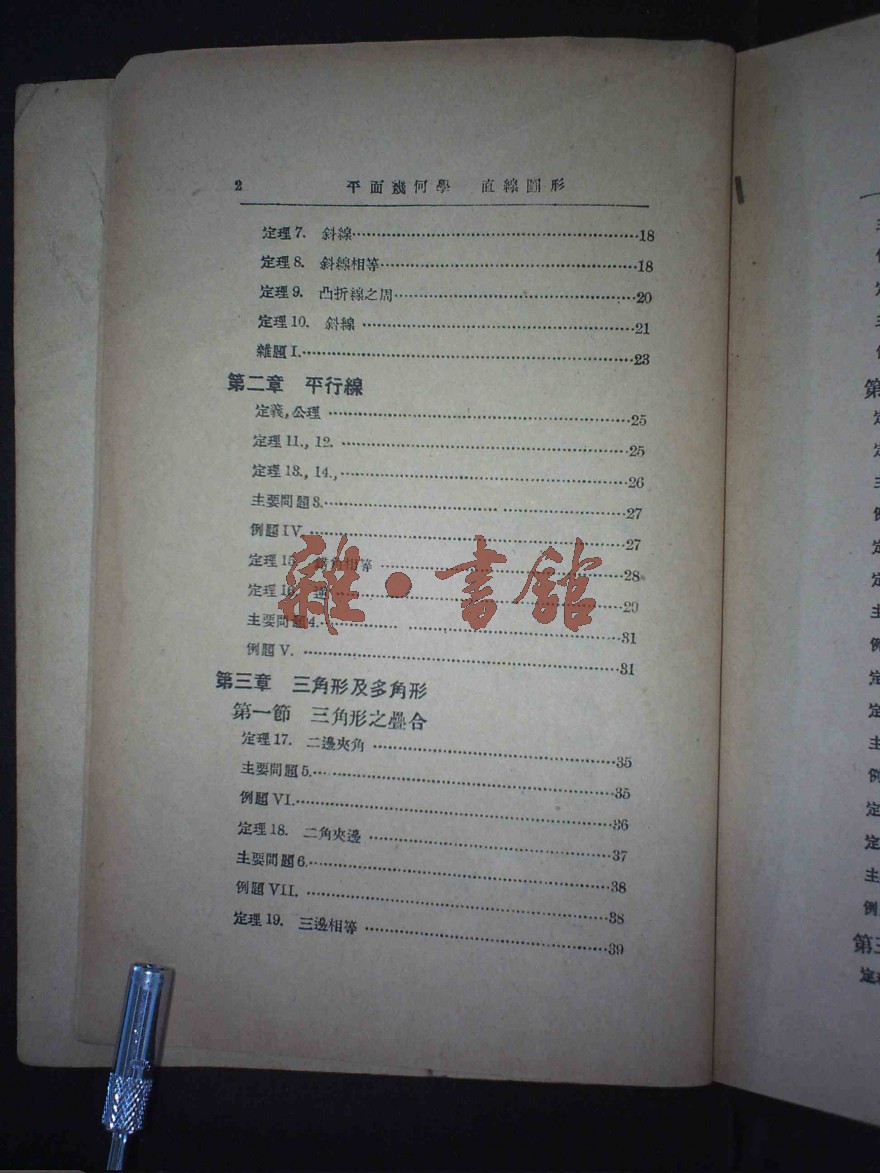 2 平面幾何學 直線圖形
定理7. 斜線……18
定理8. 斜線相等……18
定理9. 凸折線之周……20
定理10. 斜線……21
雜題I.……23
第二章 平行線
定義,公理……25
定理11., 12.……25
定理13., 14.,……26
主要問題3.……27
例題IV.……27
定理15. 錯角相等……28
定理16. 逆……29
主要問題4.……31
例題V.……31
第三章 三角形及多角形
第一節 三角形之疊合
定理17. 二邊夾角……35
主要問題5.……35
例題VI.……36
定理18. 二角夾邊……37
主要問題6.……38
例題VII.……38
定理19. 三邊相等……39
雜·書館